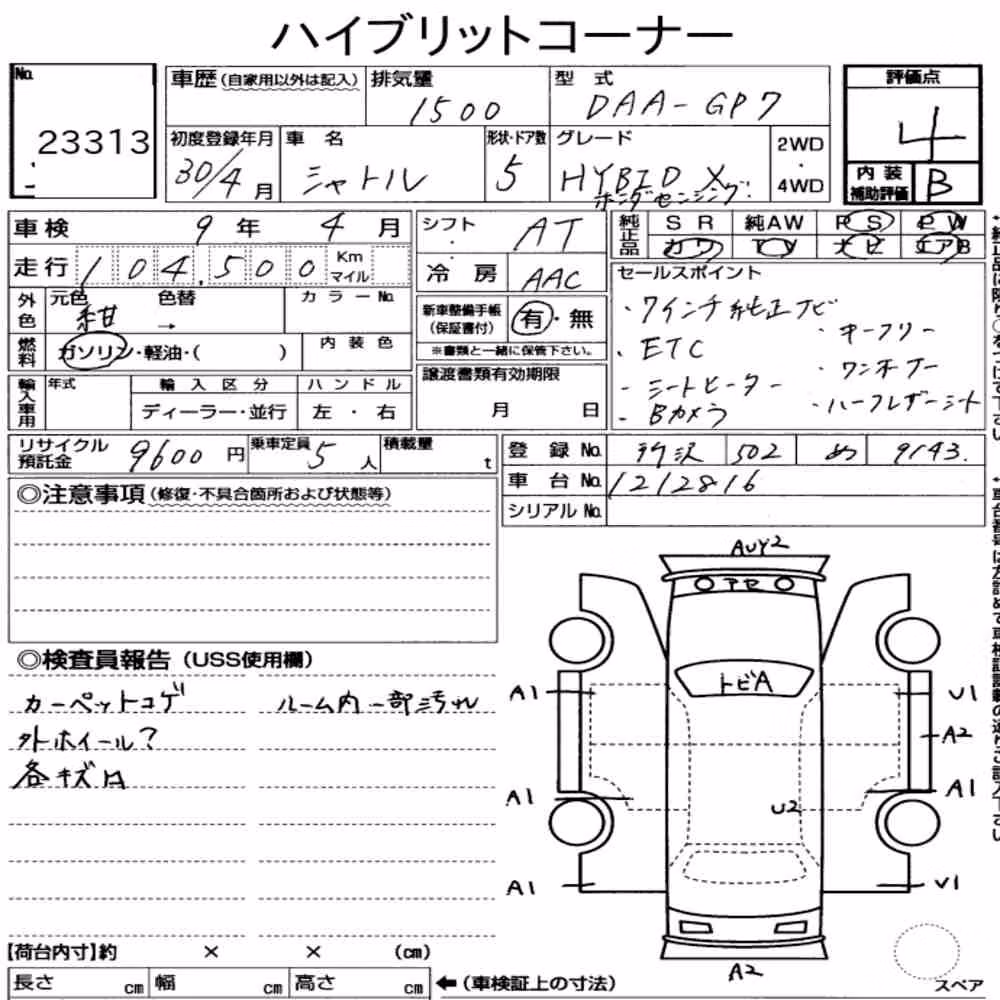 ハイブリットコーナー
No. 23313
車歴(自家用以外は記入) 排気量 1500 型式 DAA-GP7
評価点 4
初度登録年月 30/4月 車名 シャトル 形状・ドア数 5 グレード HYBID X ホンダセンシング 2WD・4WD
内装補助評価 B
車検 9年 4月 シフト AT
純正品 SR 純AW PS PW
カワ TV ナビ エアB
走行 104,500 Km マイル 冷房 AAC
セールスポイント
外色 元色 紺 色替 → カラーNo.
新車整備手帳(保証書付) 有・無
※書類と一緒に保管下さい。
・7インチ純正ナビ
・キーフリー
・ETC
・ワンオーナー
・シートヒーター
・Bカメラ
・ハーフレザーシート
燃料 ガソリン・軽油・( ) 内装色
譲渡書類有効期限 月 日
輸入車用 年式 輸入区分 ハンドル
ディーラー・並行 左・右
リサイクル預託金 9600円 乗車定員 5人 積載量 t
登録No. 所沢 502 め 9143.
車台No. 1212816
シリアルNo.
◎注意事項(修復・不具合箇所および状態等)
◎検査員報告(USS使用欄)
カーペットコゲ ルーム内一部汚れ
外ホイール?
各キズ凹
AUY2
アセ
トビA
A1 U1
A2
A1 A1
U2
A1 U1
A2
スペア
【荷台内寸】約 × × (cm)
長さ cm 幅 cm 高さ cm ←(車検証上の寸法)